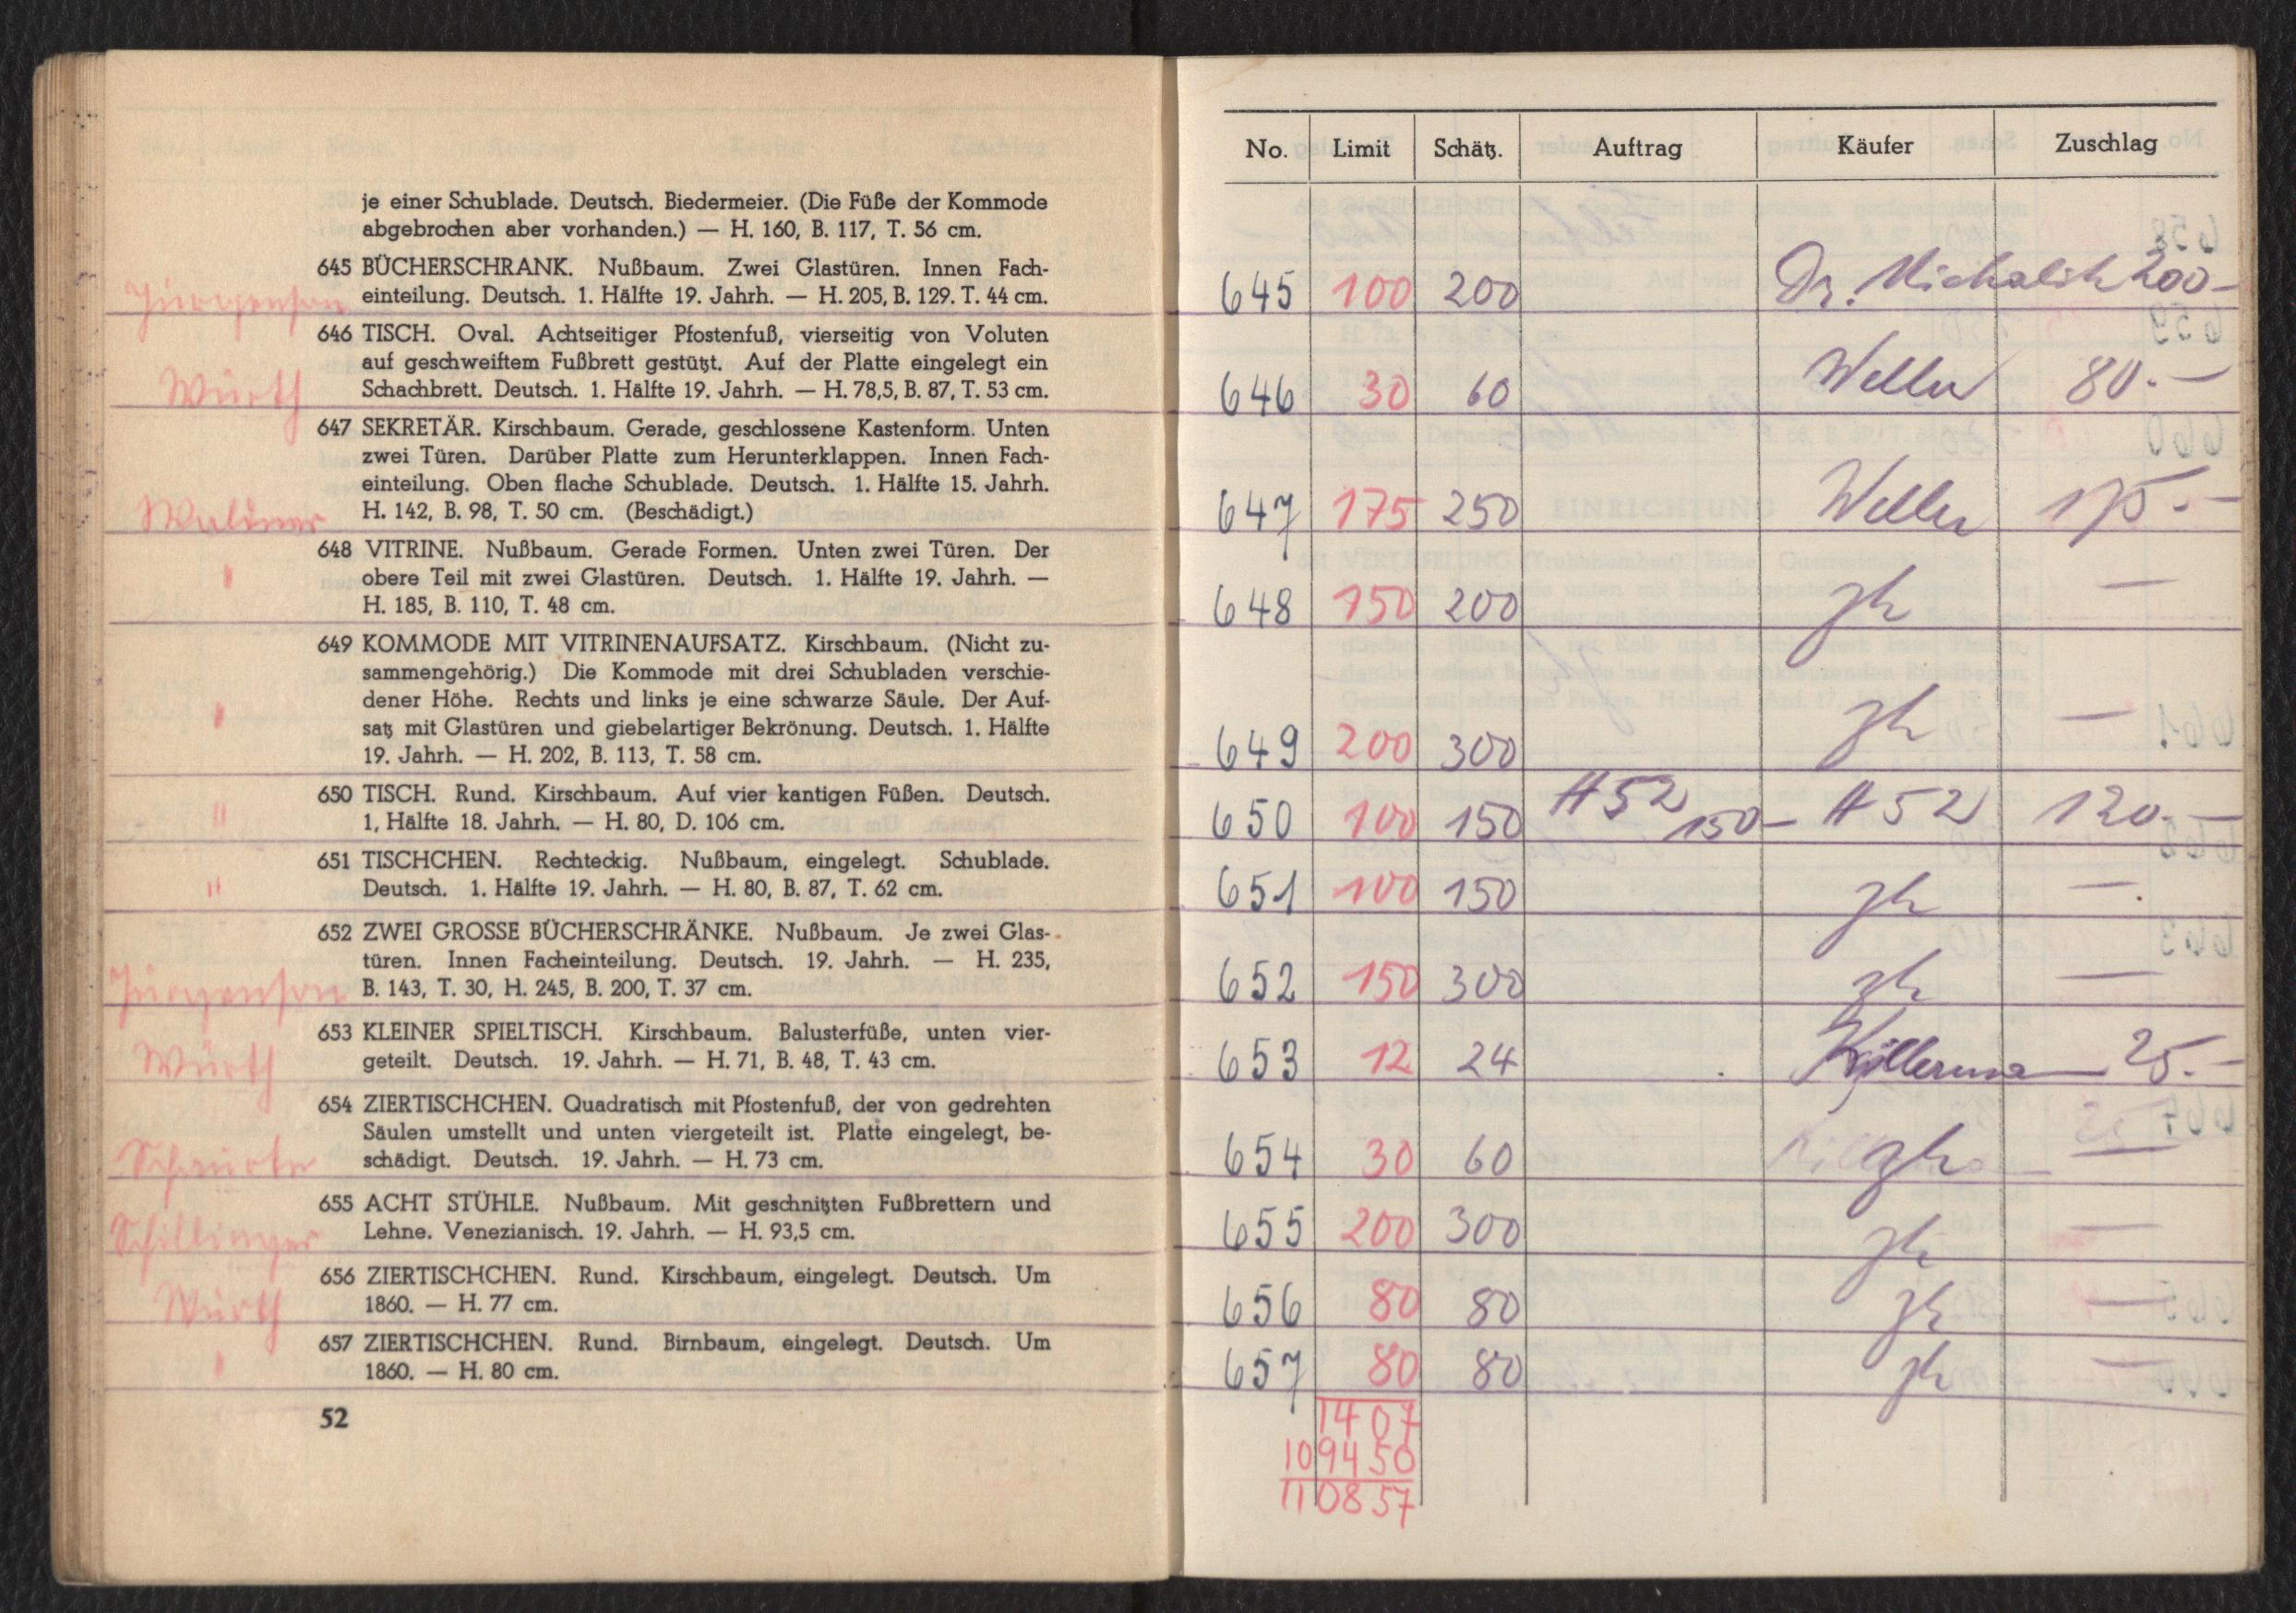 je einer Schublade. Deutsch. Biedermeier. (Die Füße der Kommode
abgebrochen aber vorhanden.) — H. 160, B. 117, T. 56 cm.
645 BÜCHERSCHRANK. Nußbaum. Zwei Glastüren. Innen Fach-
einteilung. Deutsch. 1. Hälfte 19. Jahrh. — H. 205, B. 129. T. 44 cm.
Jürgenson
646 TISCH. Oval. Achtseitiger Pfostenfuß, vierseitig von Voluten
auf geschweiftem Fußbrett gestützt. Auf der Platte eingelegt ein
Schachbrett. Deutsch. 1. Hälfte 19. Jahrh. — H. 78,5, B. 87, T. 53 cm.
Würth
647 SEKRETÄR. Kirschbaum. Gerade, geschlossene Kastenform. Unten
zwei Türen. Darüber Platte zum Herunterklappen. Innen Fach-
einteilung. Oben flache Schublade. Deutsch. 1. Hälfte 15. Jahrh.
H. 142, B. 98, T. 50 cm. (Beschädigt.)
648 VITRINE. Nußbaum. Gerade Formen. Unten zwei Türen. Der
obere Teil mit zwei Glastüren. Deutsch. 1. Hälfte 19. Jahrh. —
H. 185, B. 110, T. 48 cm.
649 KOMMODE MIT VITRINENAUFSATZ. Kirschbaum. (Nicht zu-
sammengehörig.) Die Kommode mit drei Schubladen verschie-
dener Höhe. Rechts und links je eine schwarze Säule. Der Auf-
satz mit Glastüren und giebelartiger Bekrönung. Deutsch. 1. Hälfte
19. Jahrh. — H. 202, B. 113, T. 58 cm.
650 TISCH. Rund. Kirschbaum. Auf vier kantigen Füßen. Deutsch.
1, Hälfte 18. Jahrh. — H. 80, D. 106 cm.
"
651 TISCHCHEN. Rechteckig. Nußbaum, eingelegt. Schublade.
Deutsch. 1. Hälfte 19. Jahrh. — H. 80, B. 87, T. 62 cm.
"
652 ZWEI GROSSE BÜCHERSCHRÄNKE. Nußbaum. Je zwei Glas-
türen. Innen Facheinteilung. Deutsch. 19. Jahrh. — H. 235,
B. 143, T. 30, H. 245, B. 200, T. 37 cm.
Jürgenson
653 KLEINER SPIELTISCH. Kirschbaum. Balusterfüße, unten vier-
geteilt. Deutsch. 19. Jahrh. — H. 71, B. 48, T. 43 cm.
Würth
654 ZIERTISCHCHEN. Quadratisch mit Pfostenfuß, der von gedrehten
Säulen umstellt und unten viergeteilt ist. Platte eingelegt, be-
schädigt. Deutsch. 19. Jahrh. — H. 73 cm.
655 ACHT STÜHLE. Nußbaum. Mit geschnitzten Fußbrettern und
Lehne. Venezianisch. 19. Jahrh. — H. 93,5 cm.
Schillinger
656 ZIERTISCHCHEN. Rund. Kirschbaum, eingelegt. Deutsch. Um
1860. — H. 77 cm.
Würth
657 ZIERTISCHCHEN. Rund. Birnbaum, eingelegt. Deutsch. Um
1860. — H. 80 cm.
52
No. Limit Schätz. Auftrag Käufer Zuschlag
645 100 200 Dr. Michalik 200-
646 30 60 Weller 80.-
647 175 250 Weller 175.-
648 150 200 zk —
649 200 300 zk —
650 100 150 A 52 150- A 52 120.-
651 100 150 zk —
652 150 300 zk —
653 12 24 25.-
654 30 60 zk —
655 200 300 zk —
656 80 80 zk —
657 80 80 zk —
1407
109450
110857